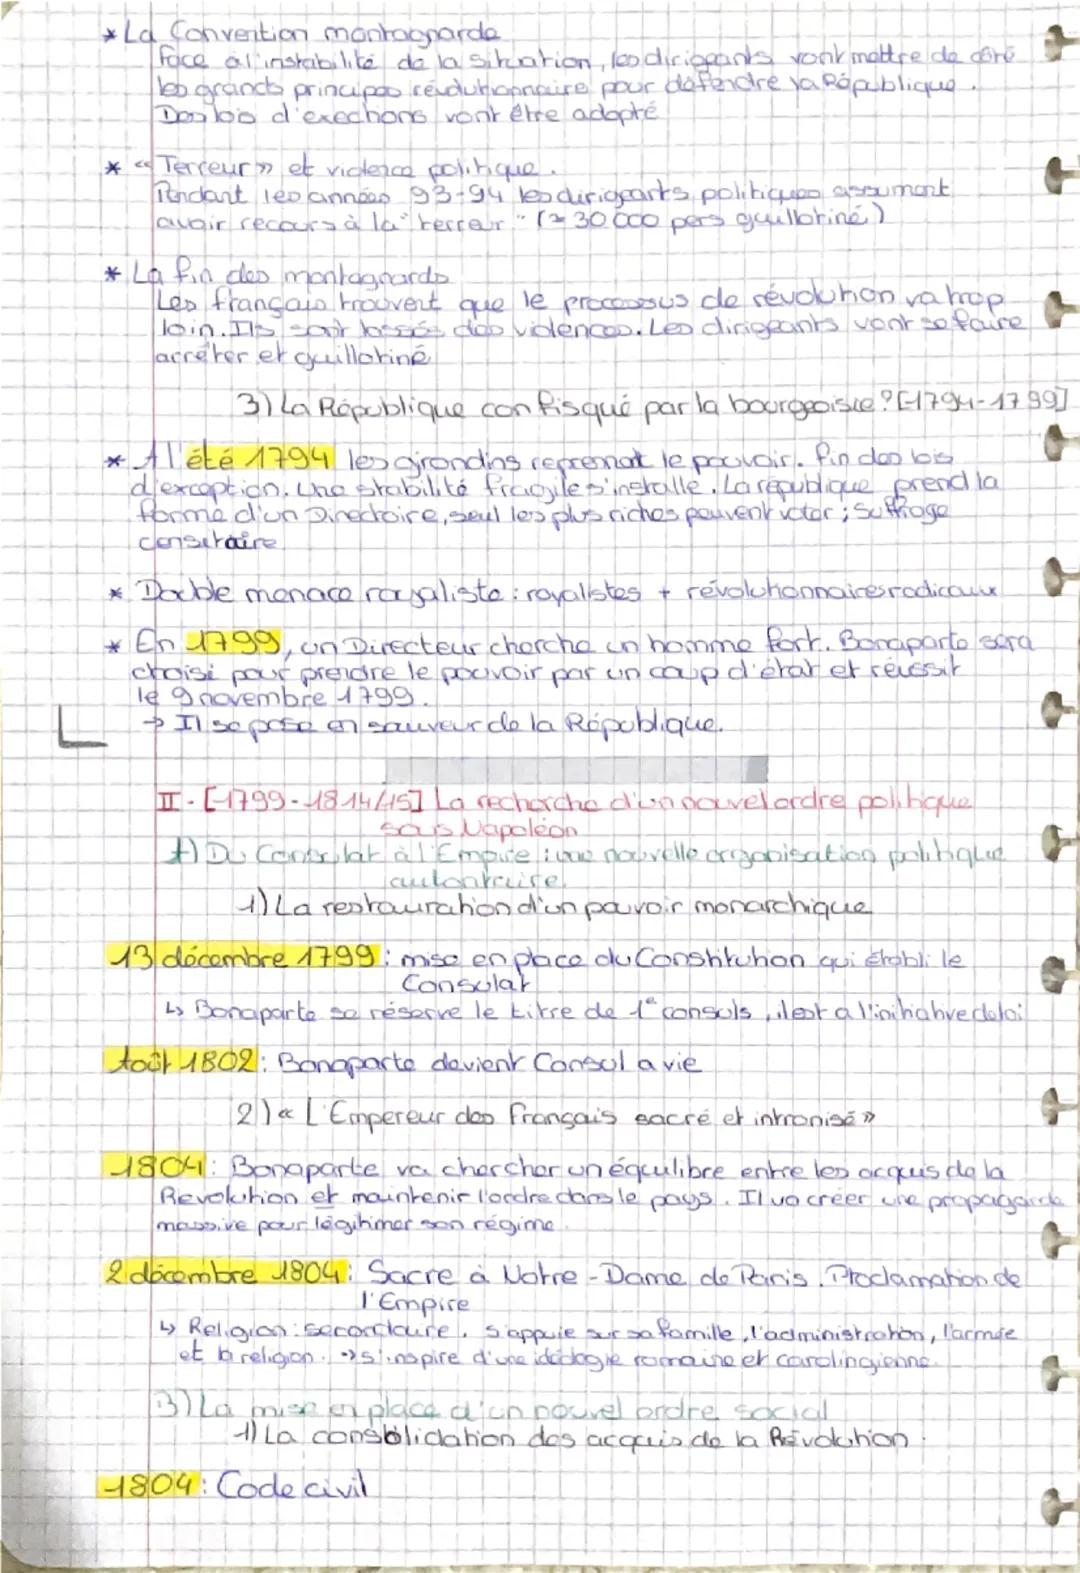 * La Convention montagnarde
Face à l'instabilité de la situation, les dirigeants vont mettre de côté
les grands principes révolutionnaire pour défendre la République.
Des lois d'exections vont être adopté
* « Terreur » et violence politique.
Pendant les années 93-94 les dirigeants politiques assument
avoir recours à la "terreur" (≈ 30 000 pers guillotiné)
* La fin des montagnards
Les français trouvent que le processus de révolution va trop
loin. Ils sont lassés des violences. Les dirigeants vont se faire
arrêter et guillotiné
3) La République confisqué par la bourgeoisie? [1794-1799]
* A l'été 1794 les girondins reprennent le pouvoir. Fin des lois
d'exception. Une stabilité fragile s'installe. La république prend la
forme d'un Directoire, seul les plus riches peuvent voter; suffrage
censitaire
* Double menace royaliste : royalistes + révolutionnaires radicaux
* En 1799, un Directeur cherche un homme fort. Bonaparte sera
choisi pour prendre le pouvoir par un coup d'état et réussit
le 9 novembre 1799.
→ Il se pose en sauveur de la République.
II - [1799-1814/15] La recherche d'un nouvel ordre politique
sous Napoléon
A) Du Consulat à l'Empire : une nouvelle organisation politique
autoritaire.
1) La restauration d'un pouvoir monarchique
13 décembre 1799 : mise en place du Constitution qui établi le
Consulat
↳ Bonaparte se réserve le titre de 1e consuls, il est a l'initiative de loi
Août 1802 : Bonaparte devient Consul a vie
2) « L'Empereur des Français sacré et intronisé »
1804 : Bonaparte va chercher un équilibre entre les acquis de la
Revolution et maintenir l'ordre dans le pays. Il va créer une propagande
massive pour légitimer son régime.
2 décembre 1804 : Sacre à Notre-Dame de Paris. Proclamation de
l'Empire
↳ Religion : secondaire. S'appuie sur sa famille, l'administration, l'armée
et la religion. → s'inspire d'une idéologie romaine et carolingienne.
B) La mise en place d'un nouvel ordre social
1) La consolidation des acquis de la Révolution.
1804 : Code civil